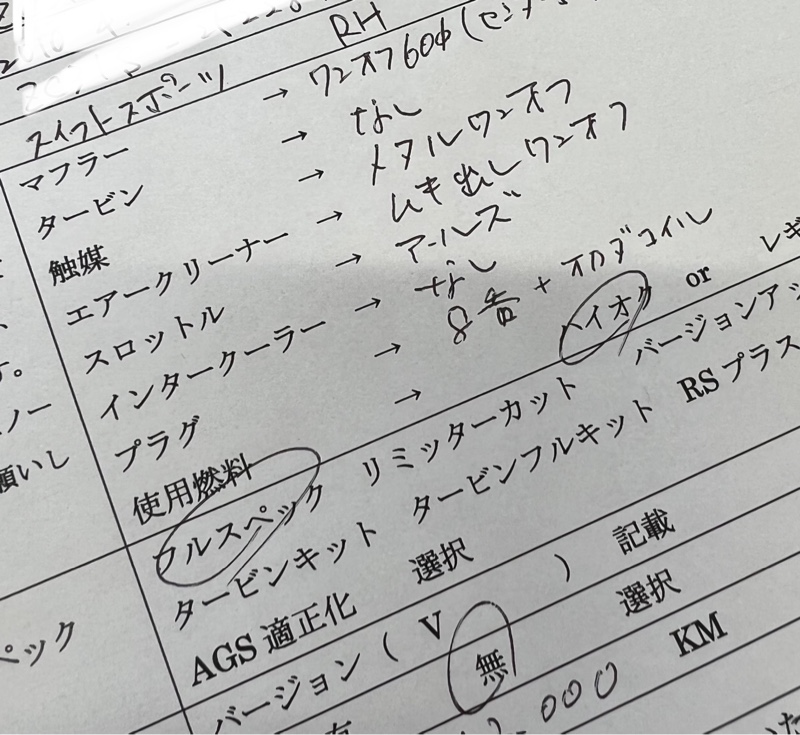 スイフトスポーツ RH
マフラー → ワンオフ60φ(センター
タービン → なし
触媒 → メタルワンオフ
エアークリーナー → ムキ出しワンオフ
スロットル → アールズ
インタークーラー → なし
プラグ → 8番+オカダコイル
使用燃料 → ハイオク or レギ
フルスペック リミッターカット バージョンアッ
タービンキット タービンフルキット RSプラス
AGS適正化 選択
バージョン( V ) 記載
有 無 選択
000 KM
す。
ノー
願いし
ペック